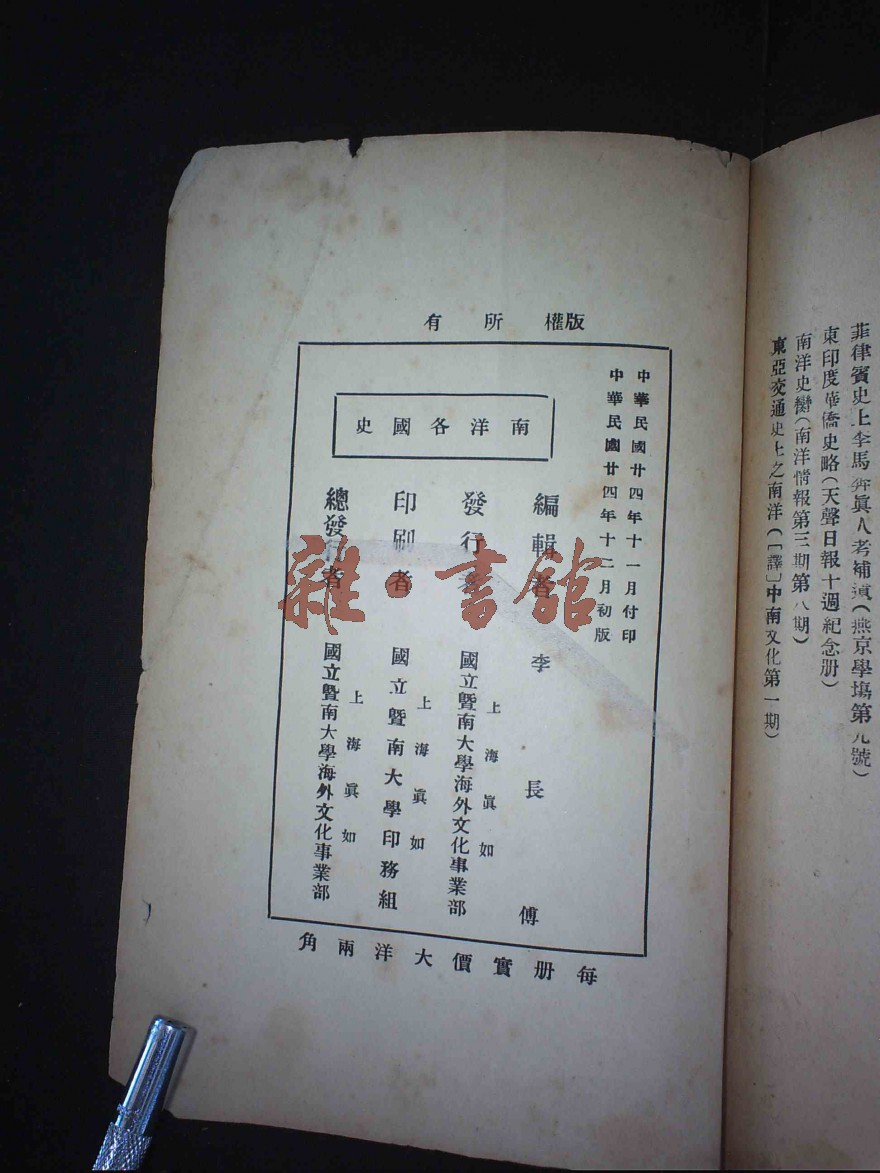 菲律賓史上李馬奔眞人考補遺(燕京學塲第九號)
東印度華僑史略(天聲日報十週紀念册)
南洋史轡(南洋情報第三期第八期)
東亞交通史上之南洋(「譯」中南文化第一期)
版權所有
中華民國廿四年十一月付印
中華民國廿四年十二月初版
南洋各國史
編輯者 李長傅
發行者 上海眞如
國立曁南大學海外文化事業部
印刷者 上海眞如
國立曁南大學印務組
總發行者 上海眞如
國立曁南大學海外文化事業部
每册實價大洋兩角
雜·書館